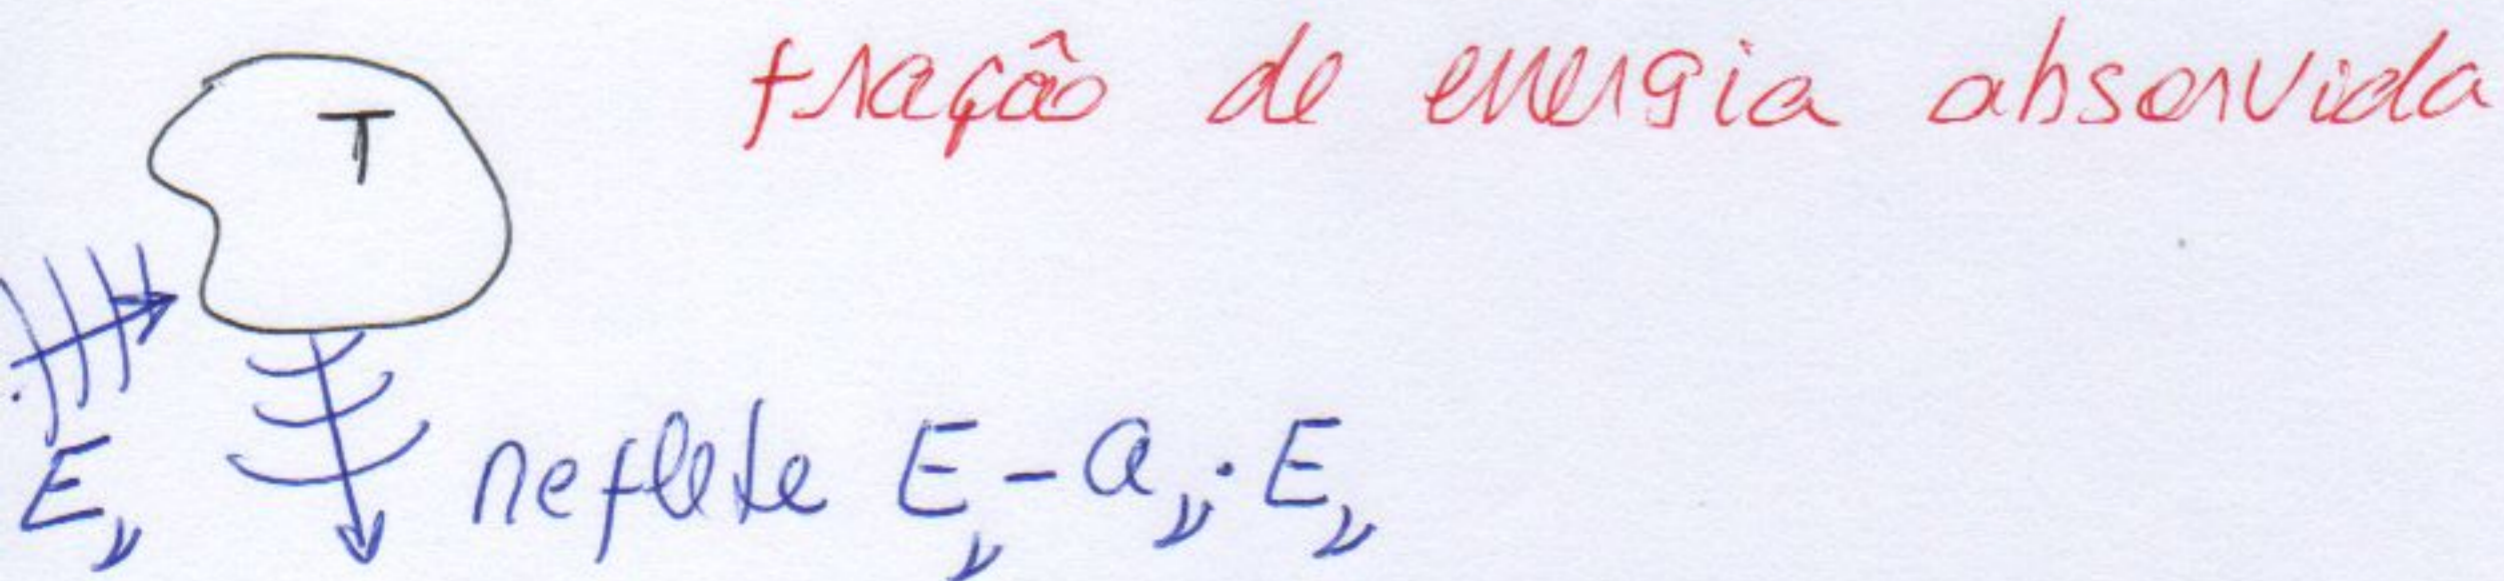 fração de energia absorvida
T
E_ν
reflete E_ν - a_ν · E_ν